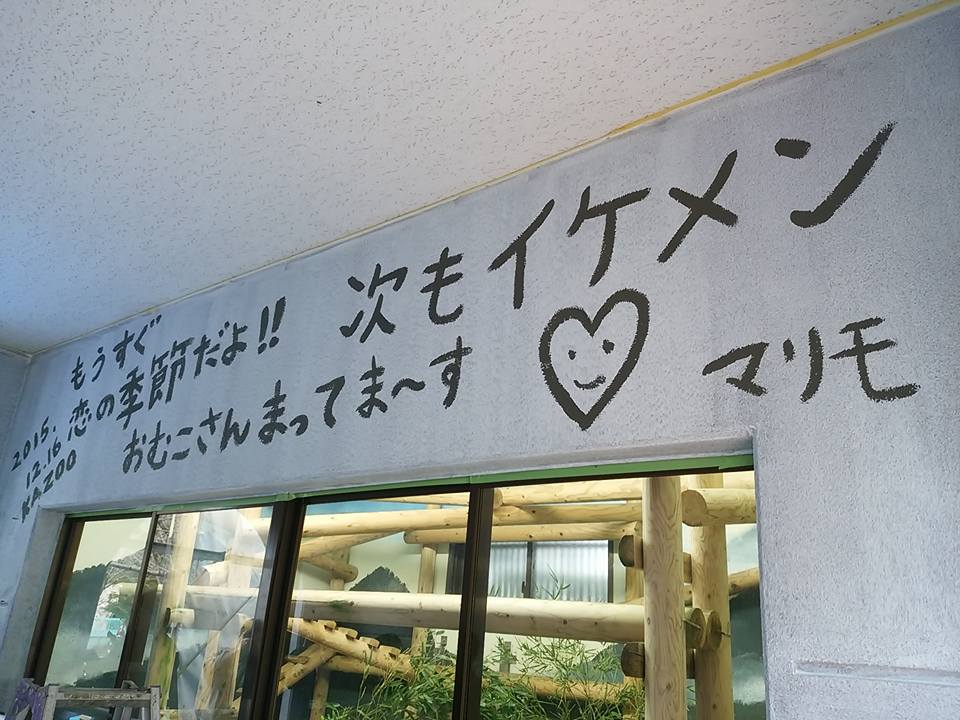 もうすぐ
恋の季節だよ!!
おむこさんまってま〜す
次もイケメン
マリモ
2015.
12.16
KAZOO